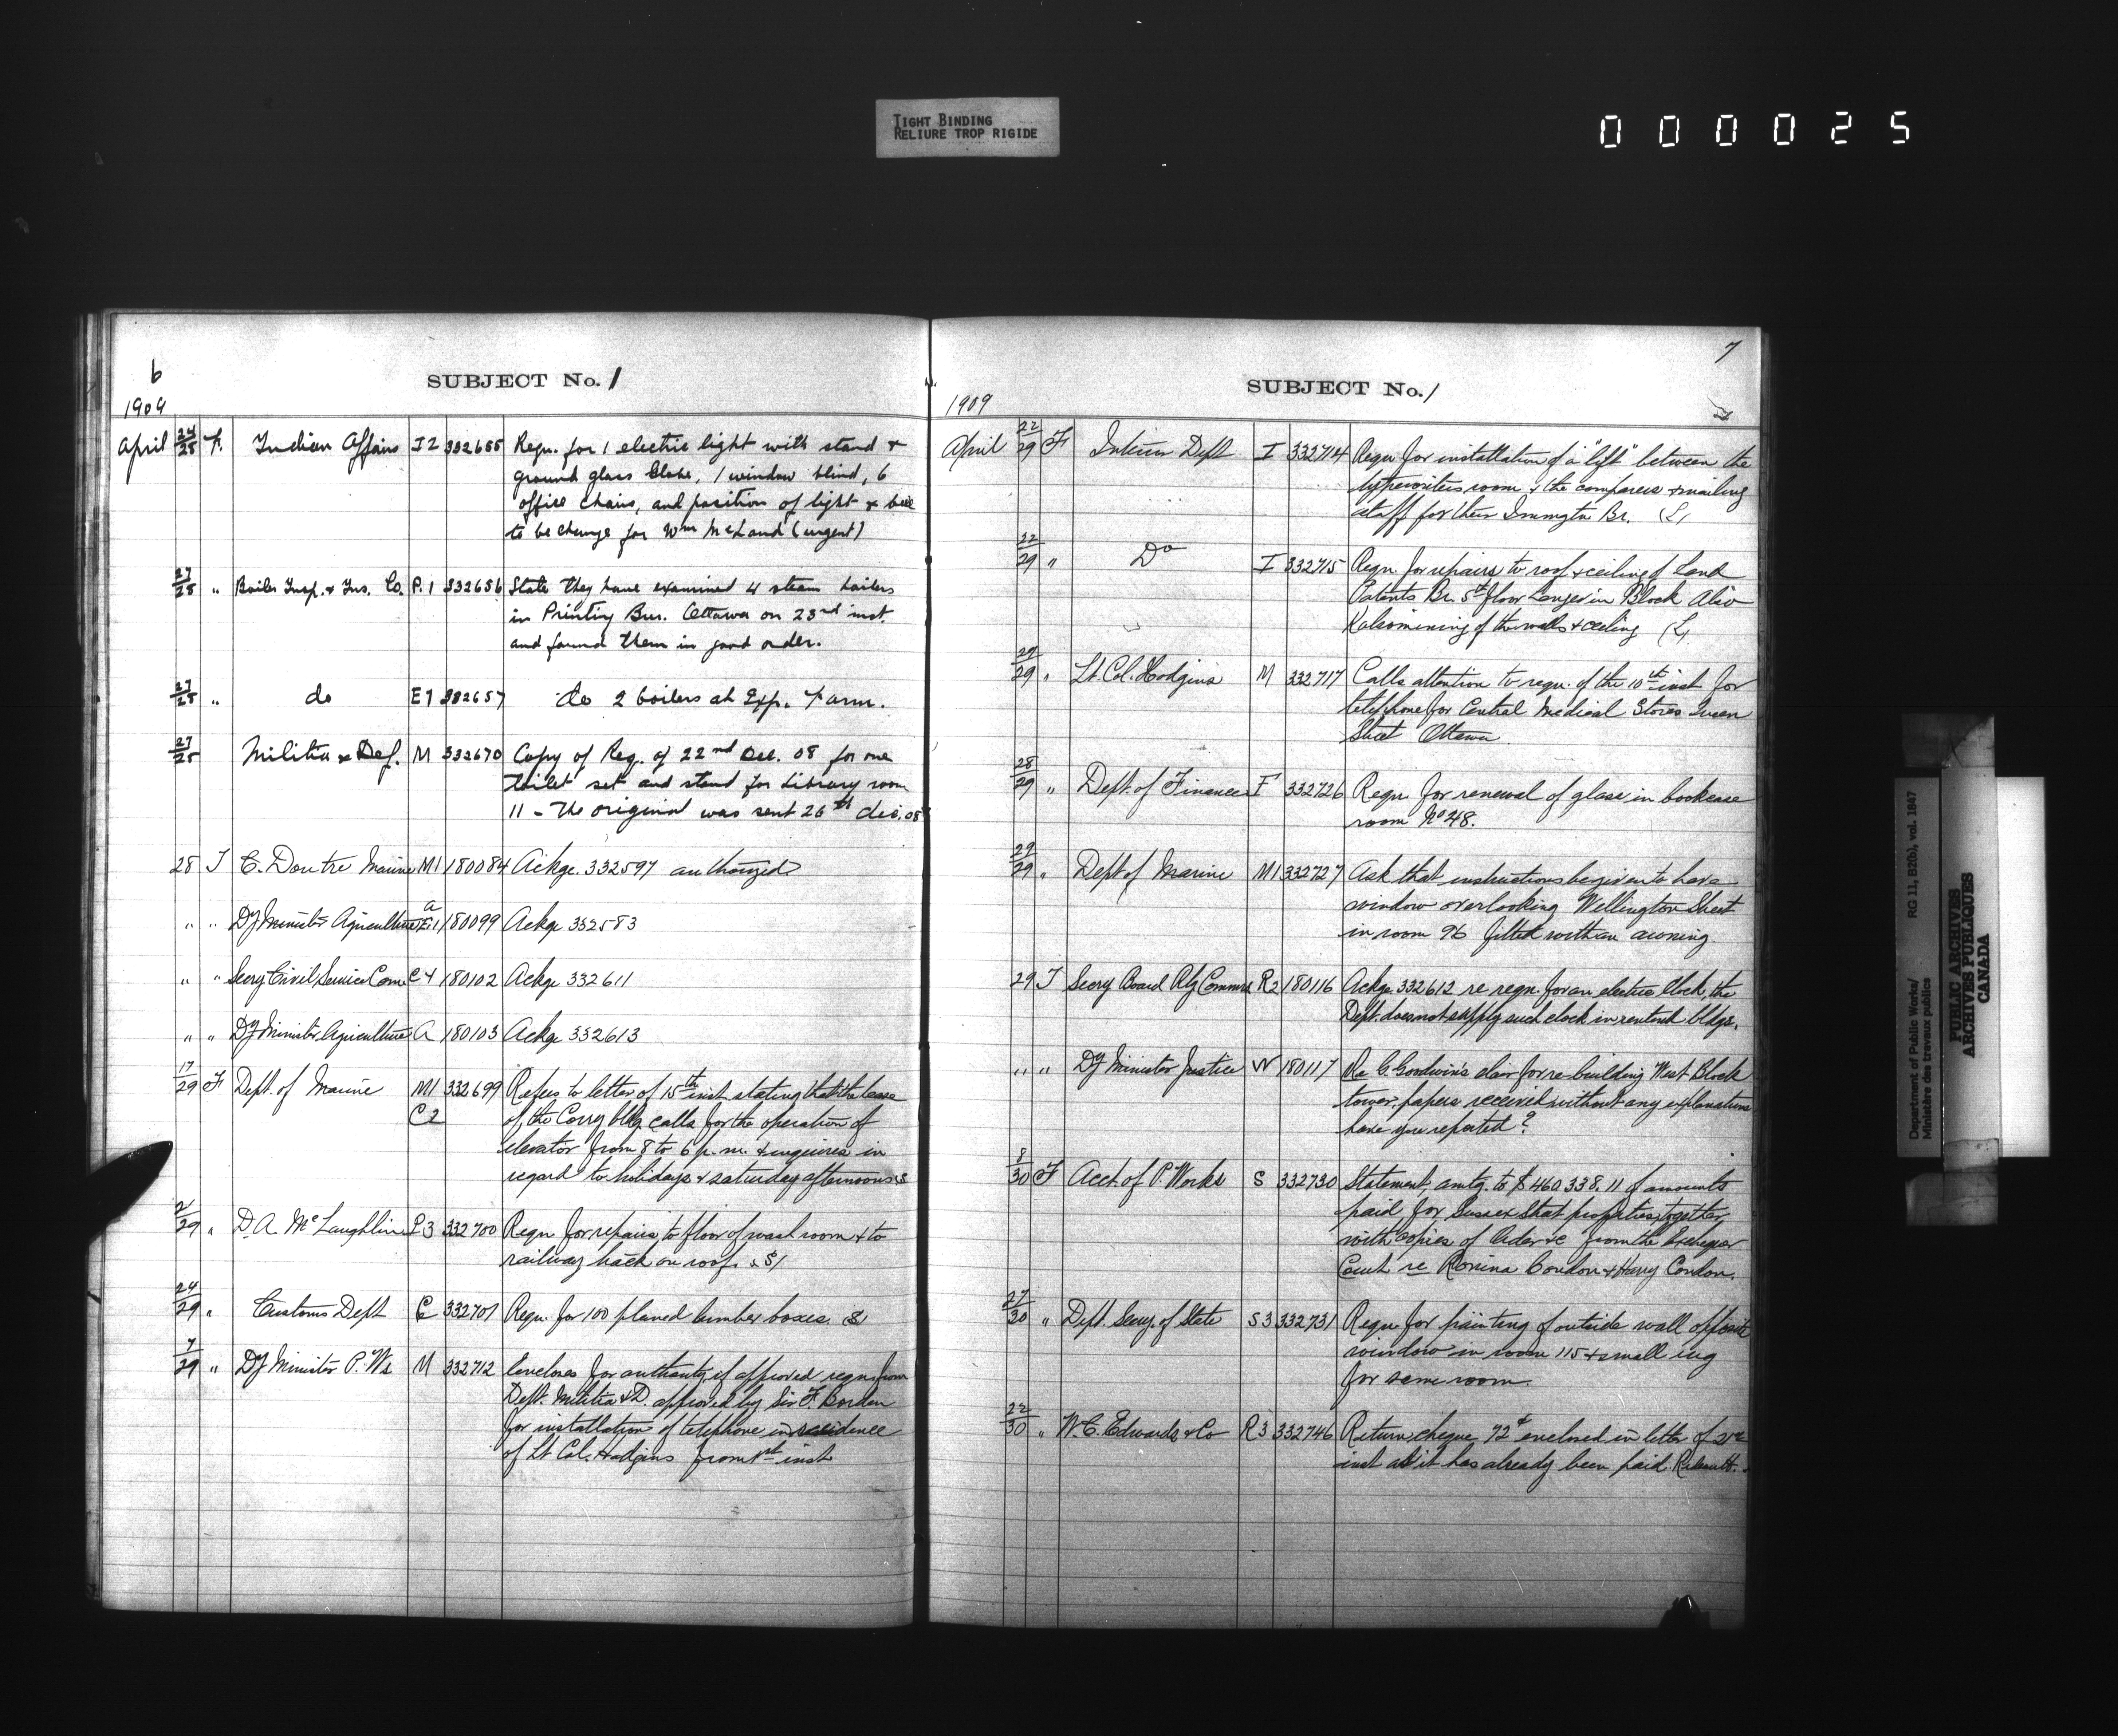 TIGHT BINDING
RELIURE TROP RIGIDE
000025
6
SUBJECT No. 1
1909
April 24/28 F. Indian Affairs I2 332655 Reqn. for 1 electric light with stand &
ground glass Globe, 1 window blind, 6
office chairs, and position of light &
to be change for Wm (urgent)
27/28 " Boiler Insp. & Ins. Co. P.1 332656 State they have examined 4 steam boilers
in Printing Bur. Ottawa on 23rd inst.
and found them in good order.
27/28 " do E1 332657 do 2 boilers at Exp. Farm.
27/28 Militia & Def. M 332670 Copy of Req. of 22nd Dec. 08 for one
toilet set and stand for Library room
11 - The original was sent 26th dec. 08
28 T C. Doutre Marine M1 180084 Ackge. 332597 authorized
" " Dy Minister Agriculture a E.1 180099 Ackge 332583
" " Secry Civil Service Comn C4 180102 Ackge 332611
" " Dy Minister Agriculture A 180103 Ackge 332613
17/29 F Dept. of Marine M1 332699 Refers to letter of 15th inst. stating that the lease
C2 of the Corry bldg calls for the operation of
elevator from 8 to 6 p.m. & inquires in
regard to holidays & saturday afternoons
21/29 " D.A. McLaughlin P3 332700 Reqn for repairs to floor of wash room & to
railway track on roof.
24/29 " Customs Dept C 332701 Reqn. for 100 planed lumber boxes.
7/29 " Dy Minister P. Ws M 332712 Encloses for authority if approved reqn from
Dept. Militia & D. approved by Sir F. Borden
for installation of telephone in residence
of Lt Col. Hodgins from 1st inst
7
SUBJECT No. 1
1909
April 22/29 F Interior Dept I 332714 Reqn for installation of a "lift" between the
typewriters room & the comparers & mailing
staff for their Immgtn Br. (L,
22/29 " Do I 332715 Reqn. for repairs to roof & ceiling of Land
Patents Br. 5th floor Langevin Block Also
Kalsomining of the walls & ceiling (L,
29/29 " Lt. Col. Hodgins M 332717 Calls attention to reqn. of the 10th inst for
telephone for Central Medical Stores Queen
Street Ottawa
28/29 " Dept. of Finance F 332726 Reqn. for renewal of glass in bookcase
room No 48.
29/29 " Dept of Marine M1 332727 Ask that instructions be given to have
window overlooking Wellington Street
in room 96 fitted with an awning.
29 T Secry Board Rly Commrs R2 180116 Ackge. 332612 re reqn. for an electric Clock, the
Dept. does not supply such clock in rented bldgs.
" " Dy Minister Justice W 180117 Re G. Goodwin's claim for re-building West Block
tower, papers received without any explanations
have you reported?
8/30 F Acct. of P. Works S 332730 Statement, amtg. to $460 338.11 of amounts
paid for Sussex Street properties, together
with copies of Order &c from the Exchequer
Court re Rosina Condon & Harry Condon.
27/30 " Dept. Secy. of State S3 332731 Reqn for painting of outside wall opposite
window in room 115 & small
for same room.
22/30 " W.C. Edwards & Co R3 332746 Return cheque 72¢ enclosed in letter of
inst as it has already been paid.
Department of Public Works/
Ministère des travaux publics
RG 11, B2(b), vol. 1847
PUBLIC ARCHIVES
ARCHIVES PUBLIQUES
CANADA